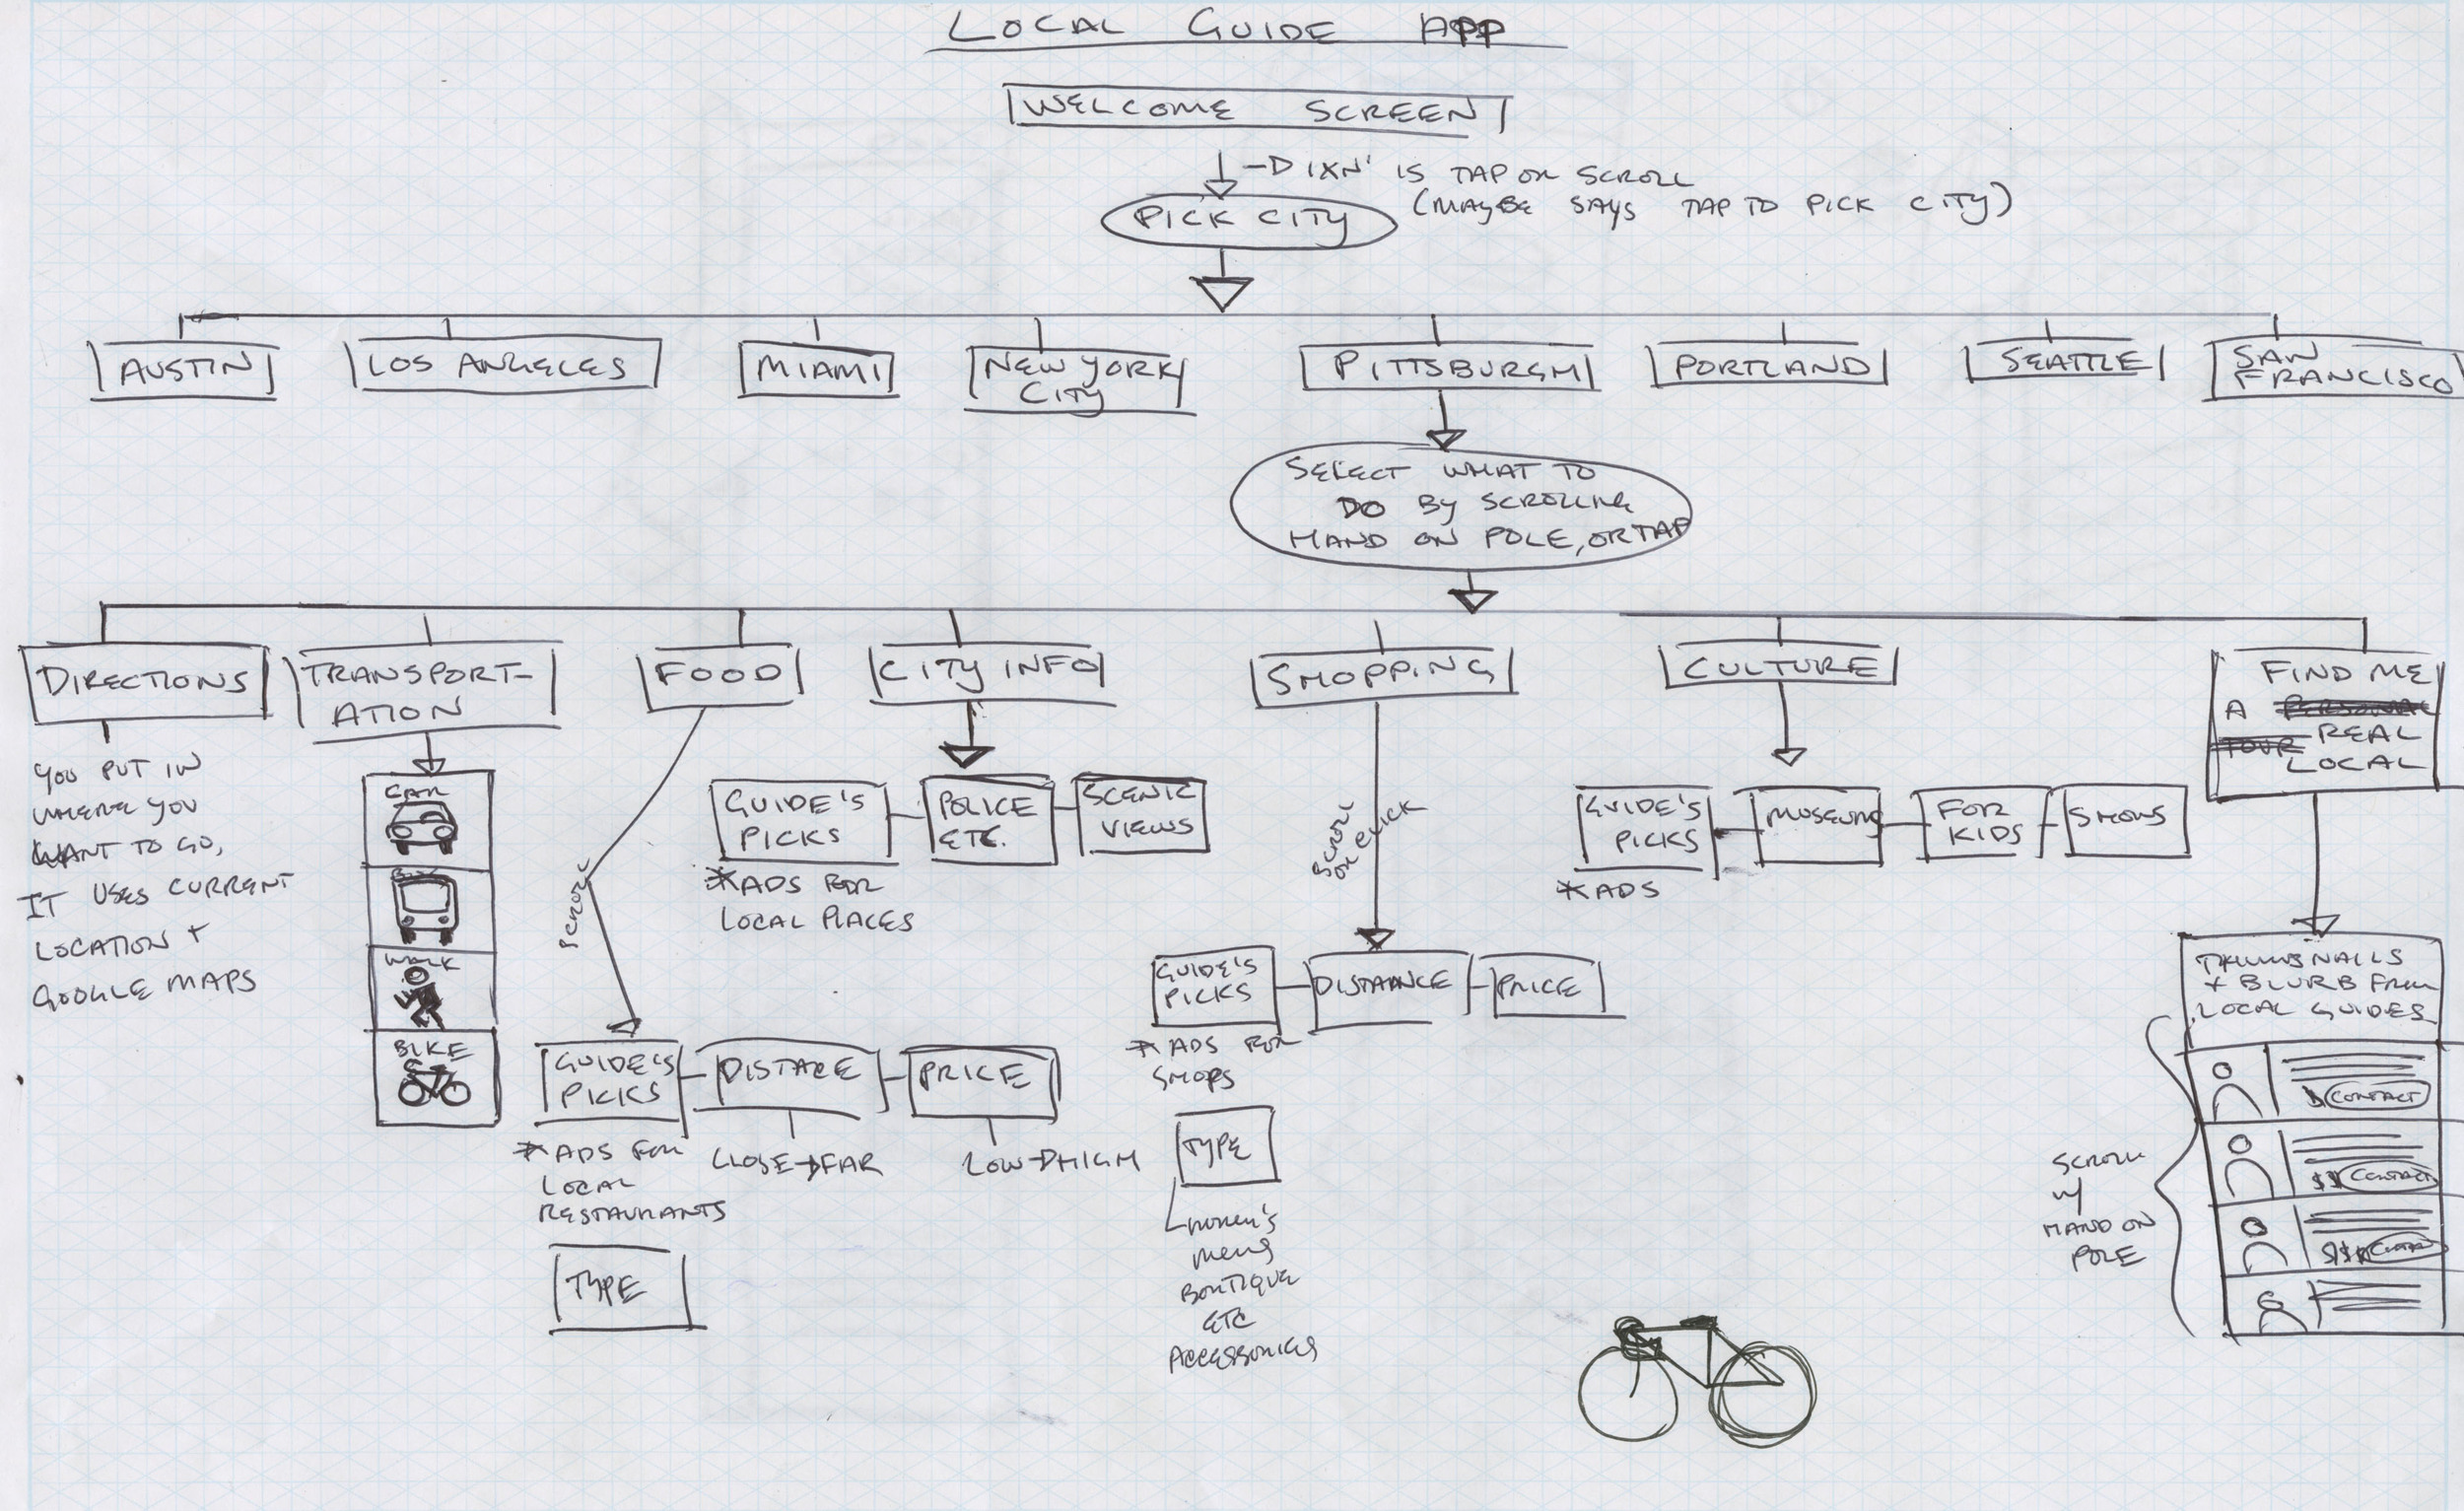 LOCAL GUIDE APP
WELCOME SCREEN
IXN' IS TAP OR SCROLL
(MAYBE SAYS TAP TO PICK CITY)
PICK CITY
AUSTIN
LOS ANGELES
MIAMI
NEW YORK
CITY
PITTSBURGH
PORTLAND
SEATTLE
SAN
FRANCISCO
SELECT WHAT TO
DO BY SCROLLING
HAND ON POLE, OR TAP
DIRECTIONS
YOU PUT IN
WHERE YOU
WANT TO GO,
IT USES CURRENT
LOCATION +
GOOGLE MAPS
TRANSPORT-
ATION
CAR
BUS
WALK
BIKE
FOOD
SCROLL
GUIDE'S
PICKS
DISTACE
PRICE
*ADS FOR
LOCAL
RESTAURANTS
CLOSE→FAR
LOW→HIGH
TYPE
CITY INFO
GUIDE'S
PICKS
POLICE
ETC.
SCENIC
VIEWS
*ADS FOR
LOCAL PLACES
SHOPPING
SCROLL
OR CLICK
GUIDE'S
PICKS
DISTANCE
PRICE
*ADS FOR
SHOPS
TYPE
WOMEN'S
MENS
BOUTIQUE
ETC
ACCESSORIES
CULTURE
GUIDE'S
PICKS
MUSEUMS
FOR
KIDS
SHOWS
*ADS
FIND ME
A PERSONAL
TOUR REAL
LOCAL
THUMBNAILS
+ BLURB FROM
LOCAL GUIDES
$ CONTACT
$$ CONTACT
$$$ CONTACT
SCROLL
W/
HAND ON
POLE